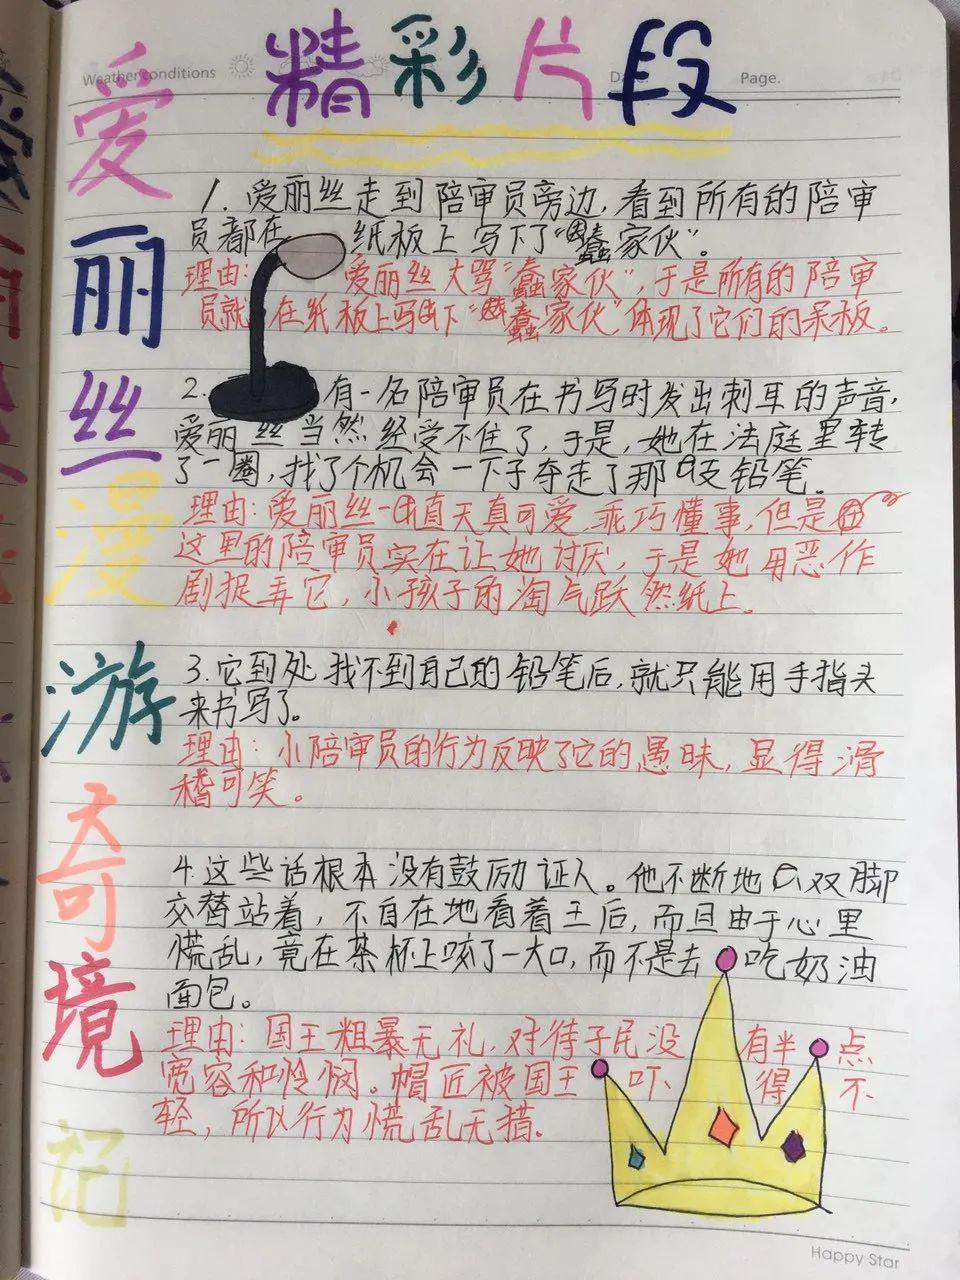 Weather conditions
Date
Page.
精彩片段
爱丽丝漫游奇境记
1. 爱丽丝走到陪审员旁边,看到所有的陪审
员都在纸板上写下了“蠢家伙”。
理由:爱丽丝大骂“蠢家伙”,于是所有的陪审
员就在纸板上写下“蠢家伙”体现了它们的呆板。
2.有一名陪审员在书写时发出刺耳的声音,
爱丽丝当然经受不住了,于是,她在法庭里转
了一圈,找了个机会一下子夺走了那支铅笔。
理由:爱丽丝一直天真可爱,乖巧懂事,但是
这里的陪审员实在让她讨厌,于是她用恶作
剧捉弄它,小孩子的淘气跃然纸上。
3.它到处找不到自己的铅笔后,就只能用手指头
来书写了。
理由:小陪审员的行为反映了它的愚昧,显得滑
稽可笑。
4.这些话根本没有鼓励证人。他不断地双脚
交替站着,不自在地看着王后,而且由于心里
慌乱,竟在茶杯上咬了一大口,而不是去吃奶油
面包。
理由:国王粗暴无礼,对待子民没有半点
宽容和怜悯。帽匠被国王吓得不
轻,所以行为慌乱无措.
Happy Star